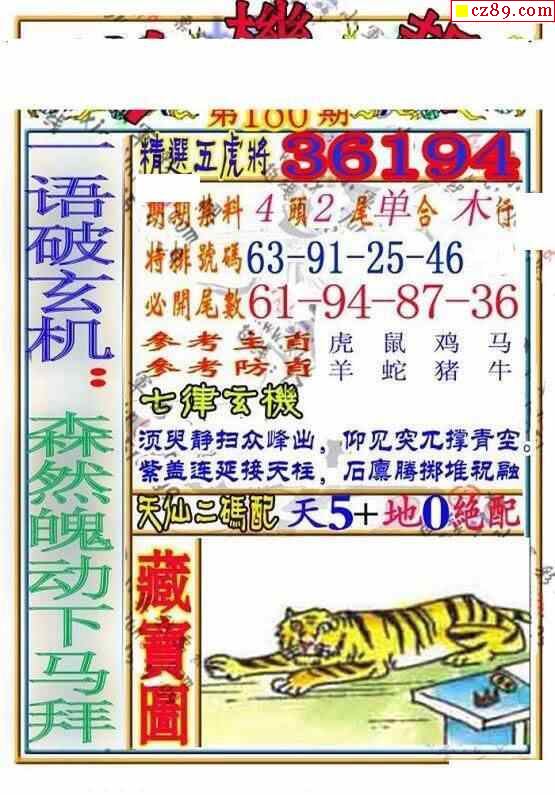 cz89.com
機
第180期
精選五虎將 36194
期期禁料 4頭2尾单合木行
特排號碼 63-91-25-46
必開尾數 61-94-87-36
參考主肖 虎 鼠 鸡 马
參考防肖 羊 蛇 猪 牛
七律玄機
须臾静扫众峰出，仰见突兀撑青空。
紫盖连延接天柱，石廪腾掷堆祝融
天仙二碼配 天5+地0絕配
一语破玄机：森然魄动下马拜
藏寶圖